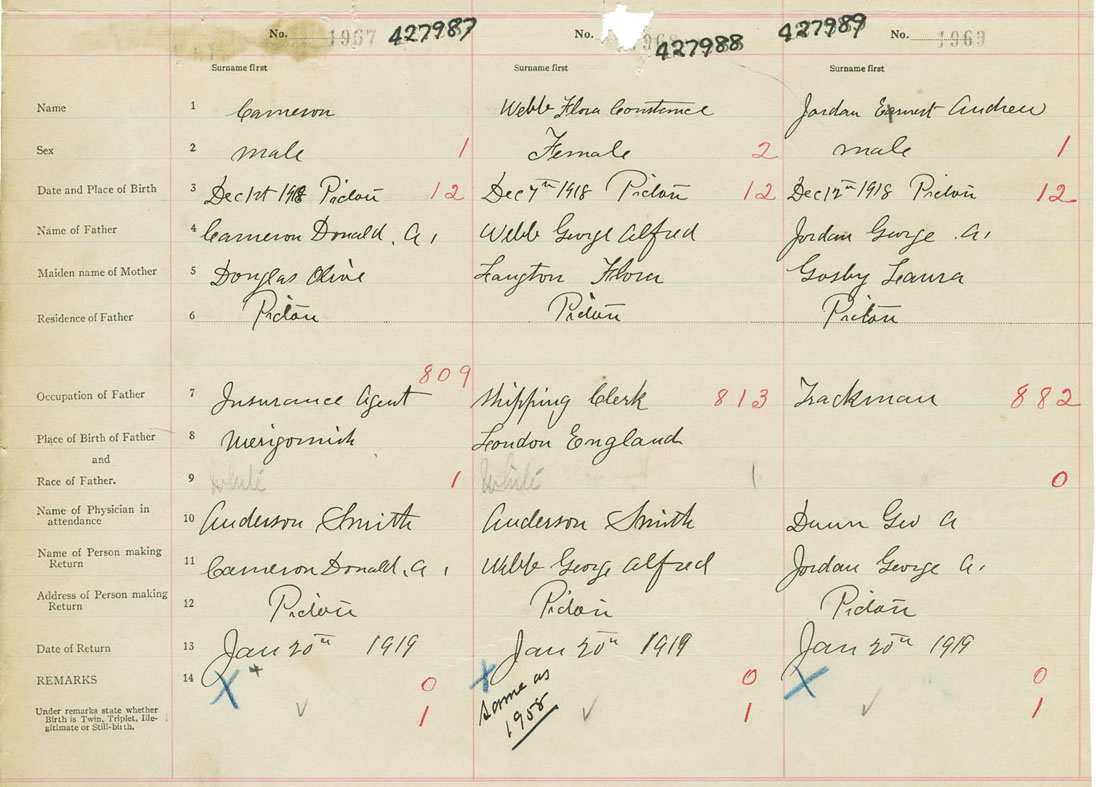 No. 1967 427987 No. 427988 427989 No. 1969
Surname first Surname first Surname first
Name 1 Cameron Webb Flora Constance Jordan Earnest Andrew
Sex 2 male 1 Female 2 male 1
Date and Place of Birth 3 Dec 1st 1918 Pictou 12 Dec 7th 1918 Pictou 12 Dec 12th 1918 Pictou 12
Name of Father 4 Cameron Donald. A. Webb George Alfred Jordan George A.
Maiden name of Mother 5 Douglas Olive Langton Flora Gosby Laura
Residence of Father 6 Pictou Pictou Pictou
809
Occupation of Father 7 Insurance Agent Shipping Clerk 813 Trackman 882
Place of Birth of Father 8 Merigomish London England
and
Race of Father. 9 White 1 White 1 0
Name of Physician in
attendance 10 Anderson Smith Anderson Smith Dunn Geo A
Name of Person making
Return 11 Cameron Donald. A. Webb George Alfred Jordan George A.
Address of Person making
Return 12 Pictou Pictou Pictou
Date of Return 13 Jan 20th 1919 Jan 20th 1919 Jan 20th 1919
REMARKS 14 X + 0 X same as 0 X 0
Under remarks state whether
Birth is Twin, Triplet, Ille-
gitimate or Still-birth. ✓ 1 1958 ✓ 1 ✓ 1